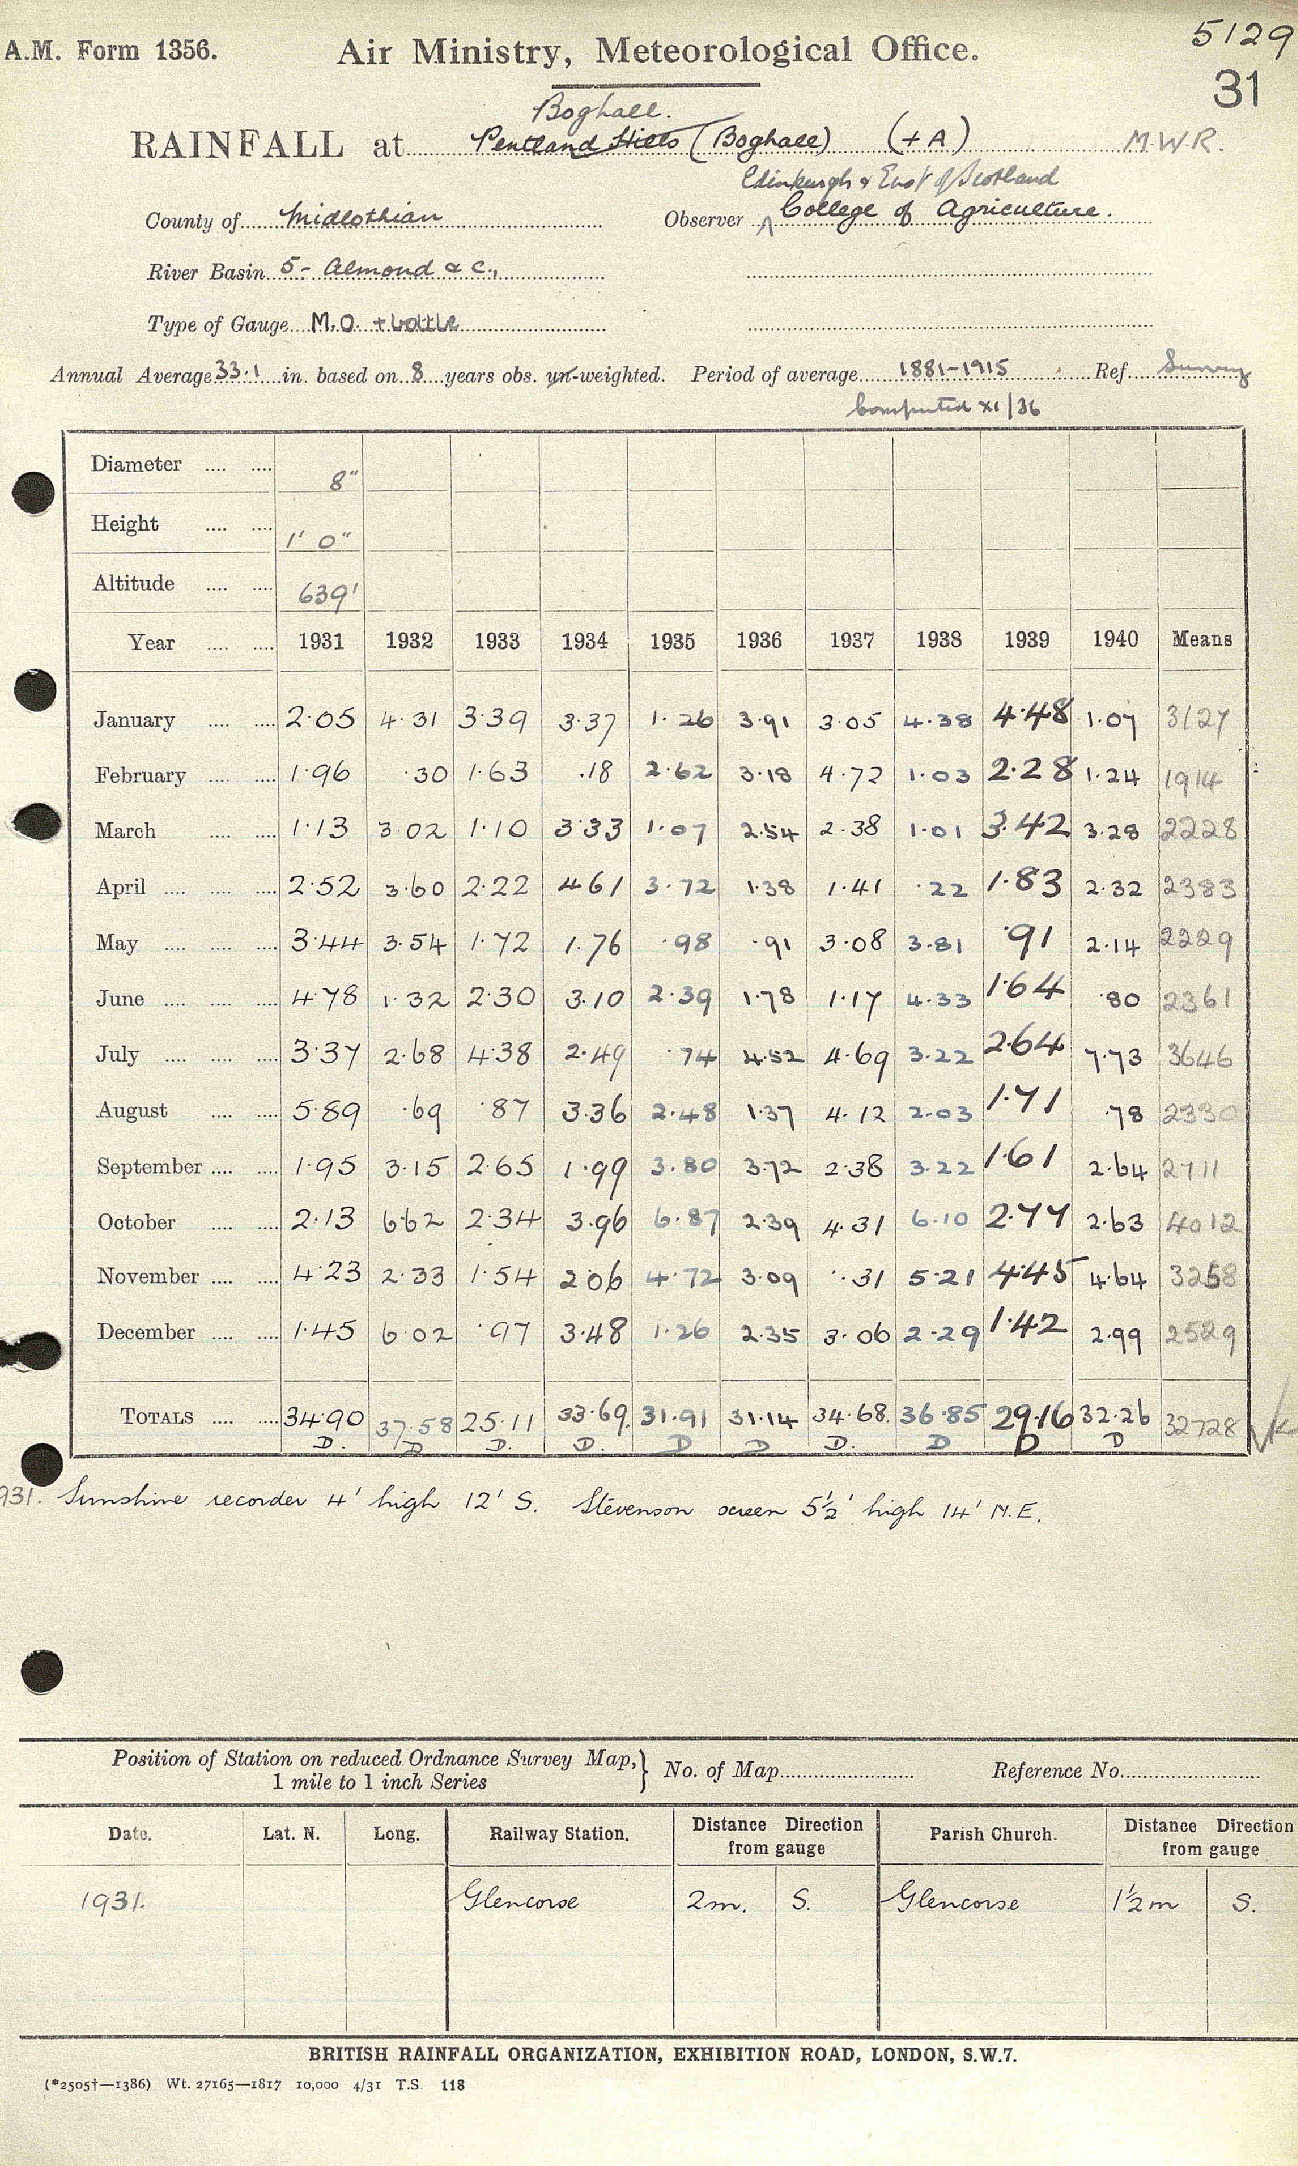 5129
A.M. Form 1356. Air Ministry, Meteorological Office.
31
Boghall.
RAINFALL at Pentland Hills (Boghall) (+A) M.W.R.
Edinburgh & East of Scotland
County of Midlothian Observer College of Agriculture.
River Basin 5- Almond & c.,
Type of Gauge M.O. + bottle
Annual Average 33.1 in. based on 8 years obs. un-weighted. Period of average 1881-1915 Ref. Survey
Computed XI/36
Diameter .... .... 8"
Height .... .... 1' 0"
Altitude .... .... 639'
Year .... .... 1931 1932 1933 1934 1935 1936 1937 1938 1939 1940 Means
January .... .... 2.05 4.31 3.39 3.37 1.26 3.91 3.05 4.38 4.48 1.07 3127
February .... .... 1.96 .30 1.63 .18 2.62 3.18 4.72 1.03 2.28 1.24 1914
March .... .... 1.13 3.02 1.10 3.33 1.07 2.54 2.38 1.01 3.42 3.28 2228
April .... .... .... 2.52 3.60 2.22 4.61 3.72 1.38 1.41 .22 1.83 2.32 2383
May .... .... .... 3.44 3.54 1.72 1.76 .98 .91 3.08 3.81 .91 2.14 2229
June .... .... .... 4.78 1.32 2.30 3.10 2.39 1.78 1.17 4.33 1.64 .80 2361
July .... .... .... 3.37 2.68 4.38 2.49 .74 4.52 4.69 3.22 2.64 7.73 3646
August .... .... 5.89 .69 .87 3.36 2.48 1.37 4.12 2.03 1.71 .78 2330
September .... .... 1.95 3.15 2.65 1.99 3.80 3.72 2.38 3.22 1.61 2.64 2711
October .... .... 2.13 6.62 2.34 3.96 6.87 2.39 4.31 6.10 2.77 2.63 4012
November .... .... 4.23 2.33 1.54 2.06 4.72 3.09 .31 5.21 4.45 4.64 3258
December .... .... 1.45 6.02 .97 3.48 1.26 2.35 3.06 2.29 1.42 2.99 2529
TOTALS .... .... 34.90 37.58 25.11 33.69 31.91 31.14 34.68 36.85 29.16 32.26 32728
D. D D. D. D D D. D D D
931. Sunshine recorder 4' high 12' S. Stevenson screen 5½' high 14' N.E.
Position of Station on reduced Ordnance Survey Map, 1 mile to 1 inch Series } No. of Map Reference No.
Date. Lat. N. Long. Railway Station. Distance Direction from gauge Parish Church. Distance Direction from gauge
1931. Glencorse 2m. S. Glencorse 1½m S.
BRITISH RAINFALL ORGANIZATION, EXHIBITION ROAD, LONDON, S.W.7.
(*2505†—1386) Wt. 27165—1817 10,000 4/31 T.S. 118